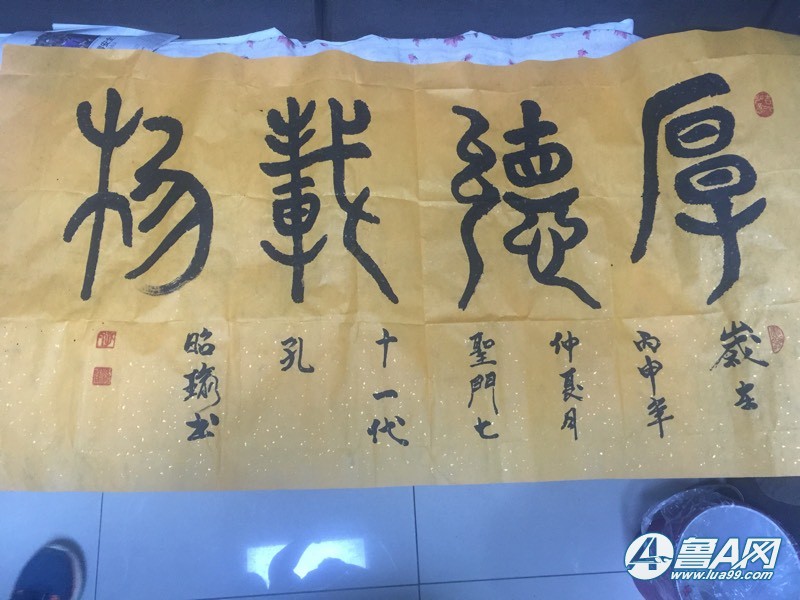 厚德載物
歲在
丙申年
仲夏月
聖門七
十一代
孔
昭书
鲁A网
www.lua99.com